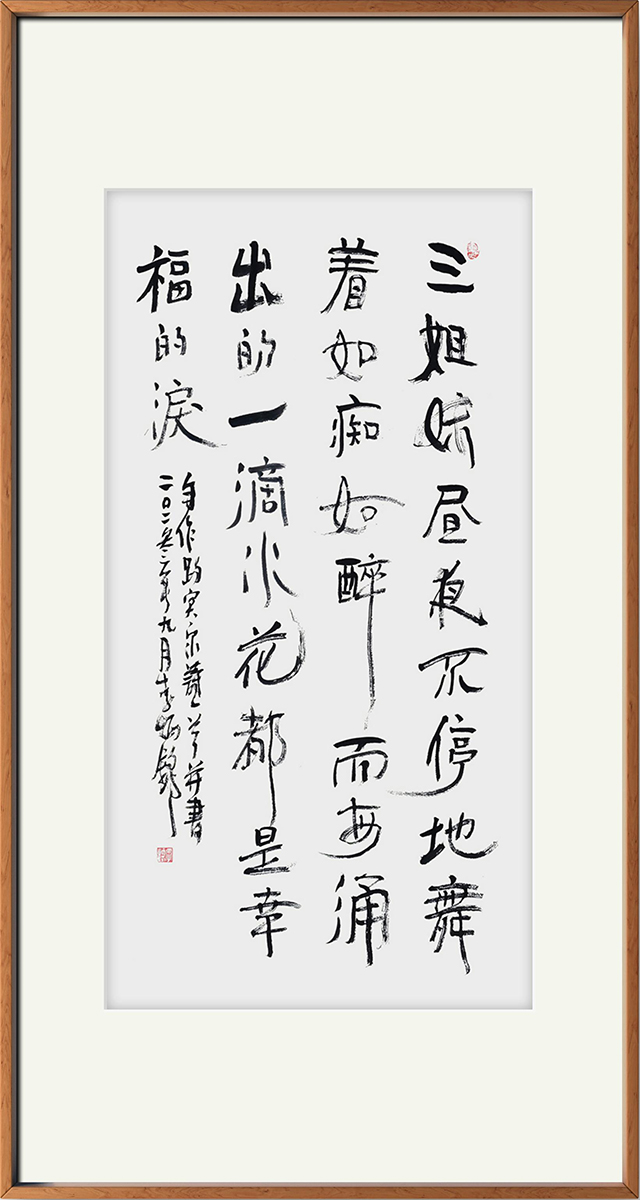 三姐妹昼夜不停地舞
着如痴如醉而每涌
出的一滴水花都是幸
福的淚
自作 并書
二〇二 年九月李